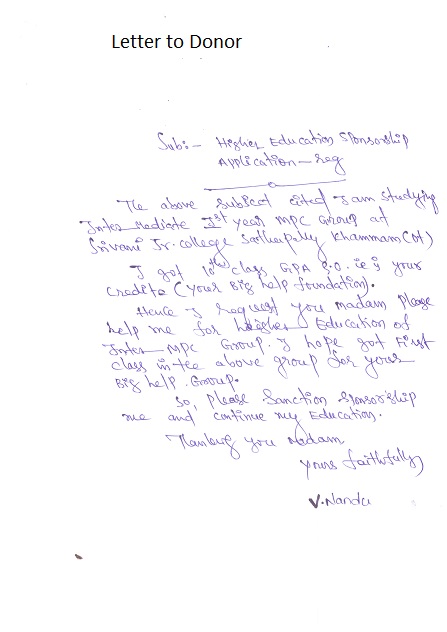 Letter to Donor
Sub:- Higher Education Sponsorship
Application-reg
The above subject cited I am studying
Inter mediate Ist year MPC Group at
Srivani Jr. college Sathupally Khammam (Dt)
I got 10th class GPA 8.0. ie is your
credite (your Big help foundation).
Hence I request you madam please
help me for heigher Education of
Inter MPC Group. I hope got First
class in the above group for your
Big help Group.
So, please Sanction Sponsorship
me and continue my Education.
Thanking you Madam
yours faithfully
V.Nandu